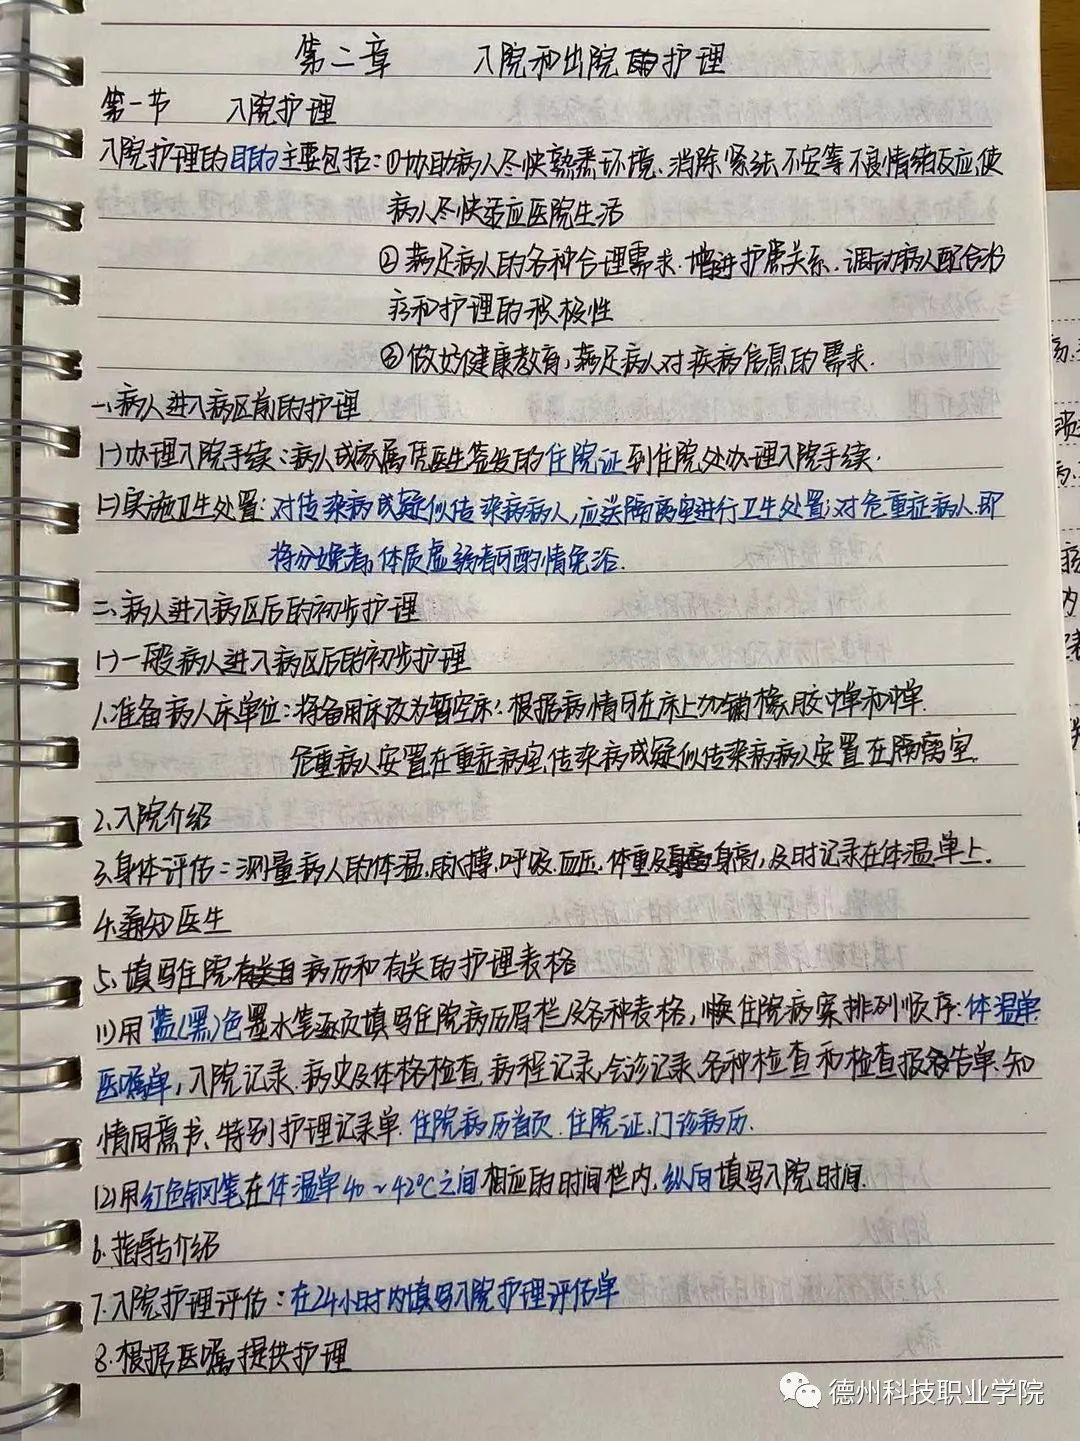 第二章 入院和出院的护理
第一节 入院护理
入院护理的目的主要包括:①协助病人尽快熟悉环境、消除紧张、不安等不良情绪反应,使
病人尽快适应医院生活
②满足病人的各种合理需求.增进护患关系.调动病人配合治
疗和护理的积极性
③做好健康教育,满足病人对疾病信息的需求.
一、病人进入病区前的护理
(一)办理入院手续:病人或家属凭医生签发的住院证到住院处办理入院手续.
(二)实施卫生处置:对传染病或疑似传染病病人,应送隔离室进行卫生处置;对危重症病人.即
将分娩者,体质虚弱者可酌情免浴.
二、病人进入病区后的初步护理
(一)一般病人进入病区后的初步护理
1.准备病人床单位:将备用床改为暂空床:根据病情可在床上加铺橡胶中单和中单.
危重病人安置在重症病室,传染病或疑似传染病病人安置在隔离室.
2.入院介绍
3.身体评估:测量病人的体温.脉搏.呼吸.血压.体重及身高,及时记录在体温单上.
4.通知医生
5.填写住院病历和有关的护理表格
(1)用蓝(黑)色墨水笔逐页填写住院病历眉栏及各种表格,
住院病案排列顺序:体温单
医嘱单,入院记录.病史及体格检查.病程记录,会诊记录.各种检查和检查报告单、知
情同意书、特别护理记录单.住院病历首页.住院证.门诊病历.
(2)用红色钢笔在体温单40~42℃之间相应的时间栏内,纵向填写入院时间.
6.指导与介绍
7.入院护理评估:在24小时内填写入院护理评估单
8.根据医嘱提供护理
德州科技职业学院